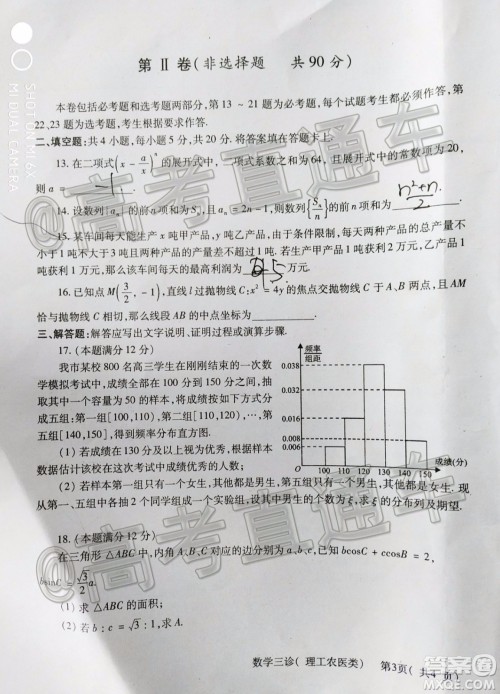 第 Ⅱ 卷(非选择题 共 90 分)
本卷包括必考题和选考题两部分,第 13 ~ 21 题为必考题,每个试题考生都必须作答.第
22、23 题为选考题,考生根据要求作答.
二、填空题:共 4 小题,每小题 5 分,共 20 分.将答案填在答题卡上.
13. 在二项式(x - a/x)ⁿ的展开式中,二项式系数之和为 64,且展开式中的常数项为 20,
则 a =
14. 设数列{aₙ}的前 n 项和为 Sₙ,且 aₙ = 2n - 1,则数列{Sₙ/n}的前 n 项和为 (n²+n)/2.
15. 某车间每天能生产 x 吨甲产品,y 吨乙产品,由于条件限制,每天两种产品的总产量不
小于 1 吨不大于 3 吨且两种产品的产量差不超过 1 吨.若生产甲产品 1 吨获利 2 万元,乙产品
1 吨获利 1 万元,那么该车间每天的最高利润为 5 万元.
16. 已知点 M(3/2, -1),直线 l 过抛物线 C:x² = 4y 的焦点交抛物线于 A、B 两点,且 AM
恰与抛物线 C 相切,那么线段 AB 的中点坐标为
三、解答题:解答应写出文字说明、证明过程或演算步骤.
17. (本题满分 12 分)
我市某校 800 名高三学生在刚刚结束的一次数
学模拟考试中,成绩全部在 100 分到 150 分之间,
抽取其中一个容量为 50 的样本,将成绩按如下方式
分成五组:第一组[100,110),第二组[110,120),…,
第五组[140,150],得到频率分布直方图.
(1) 若成绩在 130 分及以上视为优秀,根据样本
数据估计该校在这次考试中成绩优秀的人数;
频率
组距
0.038
0.016
0.008
0.006
100 110 120 130 140 150
成绩(分)
(2) 若样本第一组只有一个女生,其他都是男生,第五组只有一个男生,其他都是女生.现
从第一、五组中各抽 2 个同学组成一个实验组,设其中男同学的数量为 ξ,求 ξ 的分布列及期望.
18. (本题满分 12 分)
在三角形 △ABC 中,内角 A、B、C 对应的边分别为 a、b、c,已知 bcosC + ccosB = 2,
bsinC = √3/2 a.
(1) 求 △ABC 的面积;
(2) 若 b : c = √3 : 1,求 A.
数学三诊( 理工农医类) 第3页( 共4页)
SHOT ON MI 8 LEX
MI DUAL CAMERA
@高考直通车
@高考直通车
@高考直通车